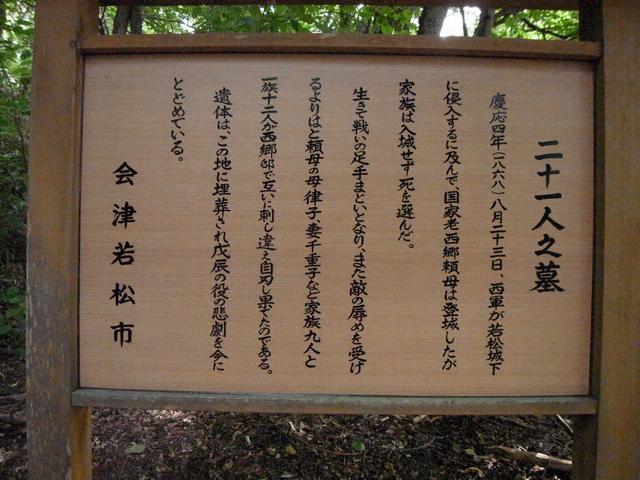 二十一人之墓
慶応四年(一八六八)八月二十三日、西軍が若松城下
に侵入するに及んで、国家老西郷頼母は登城したが
家族は入城せず死を選んだ。
生きて戦いの足手まといとなり、また敵の辱めを受け
るよりはと頼母の母律子、妻千重子など家族九人と
一族十二人が西郷邸で互いに刺し違え自刃し果てたのである。
遺体は、この地に埋葬され戊辰の役の悲劇を今に
とどめている。
会津若松市